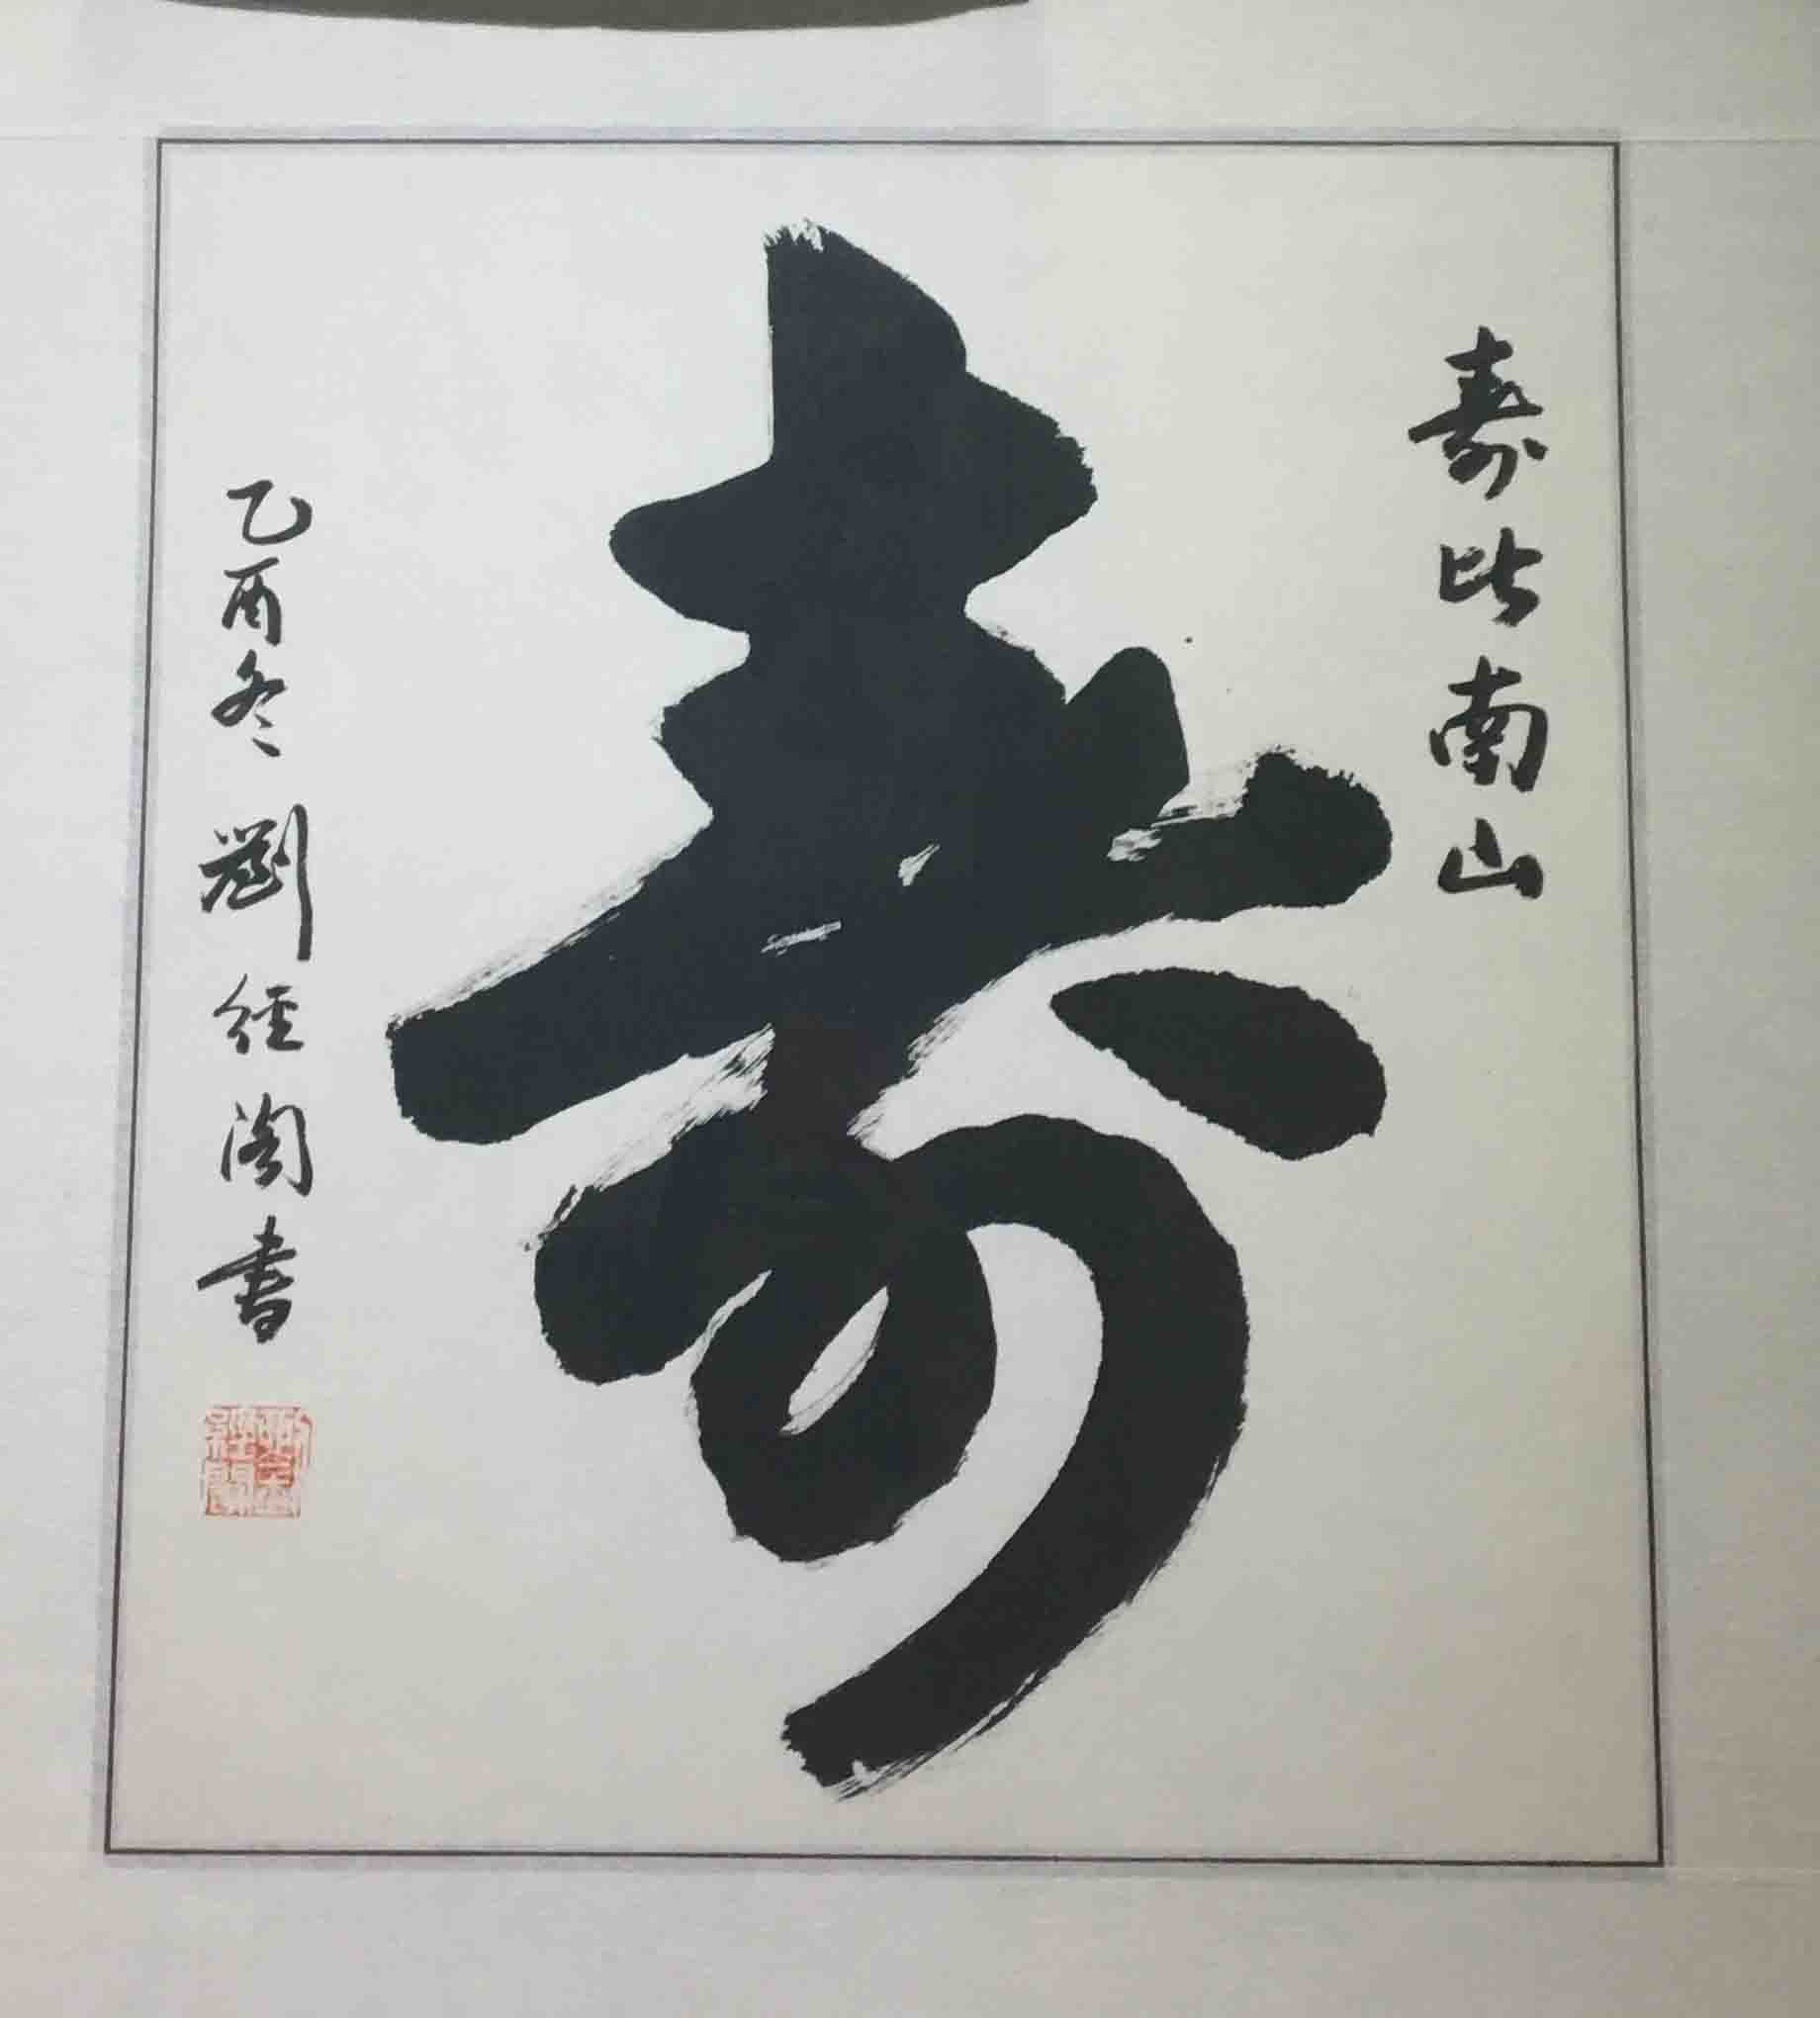 壽比南山
壽
乙酉冬 劉經闈書